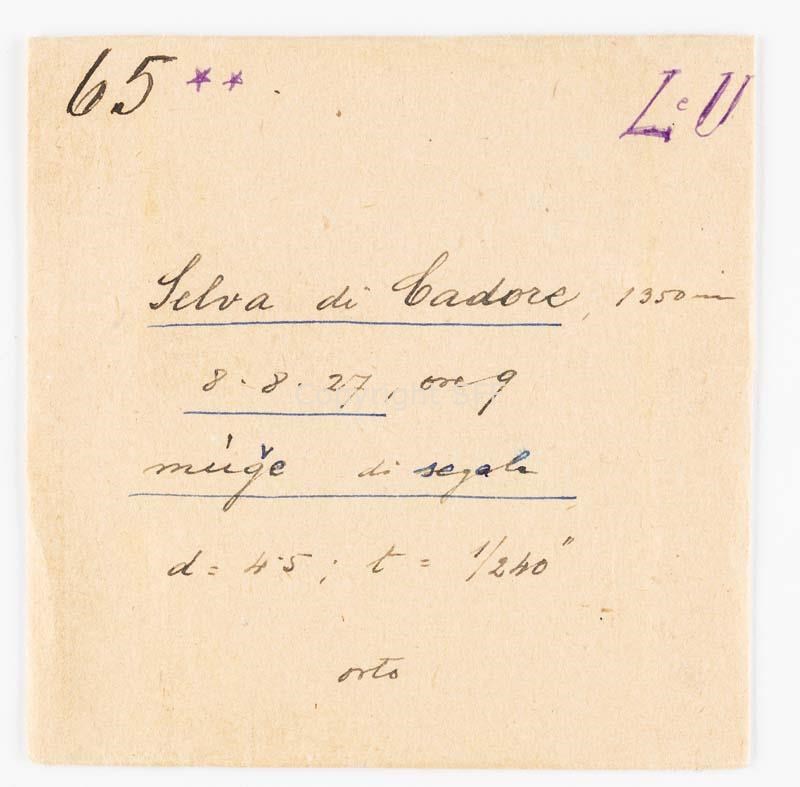 65 ** L e U
Selva di Cadore, 1350 m
8.8.27, ore 9
múğe di segala
d = 4.5; t = 1/240"
orto